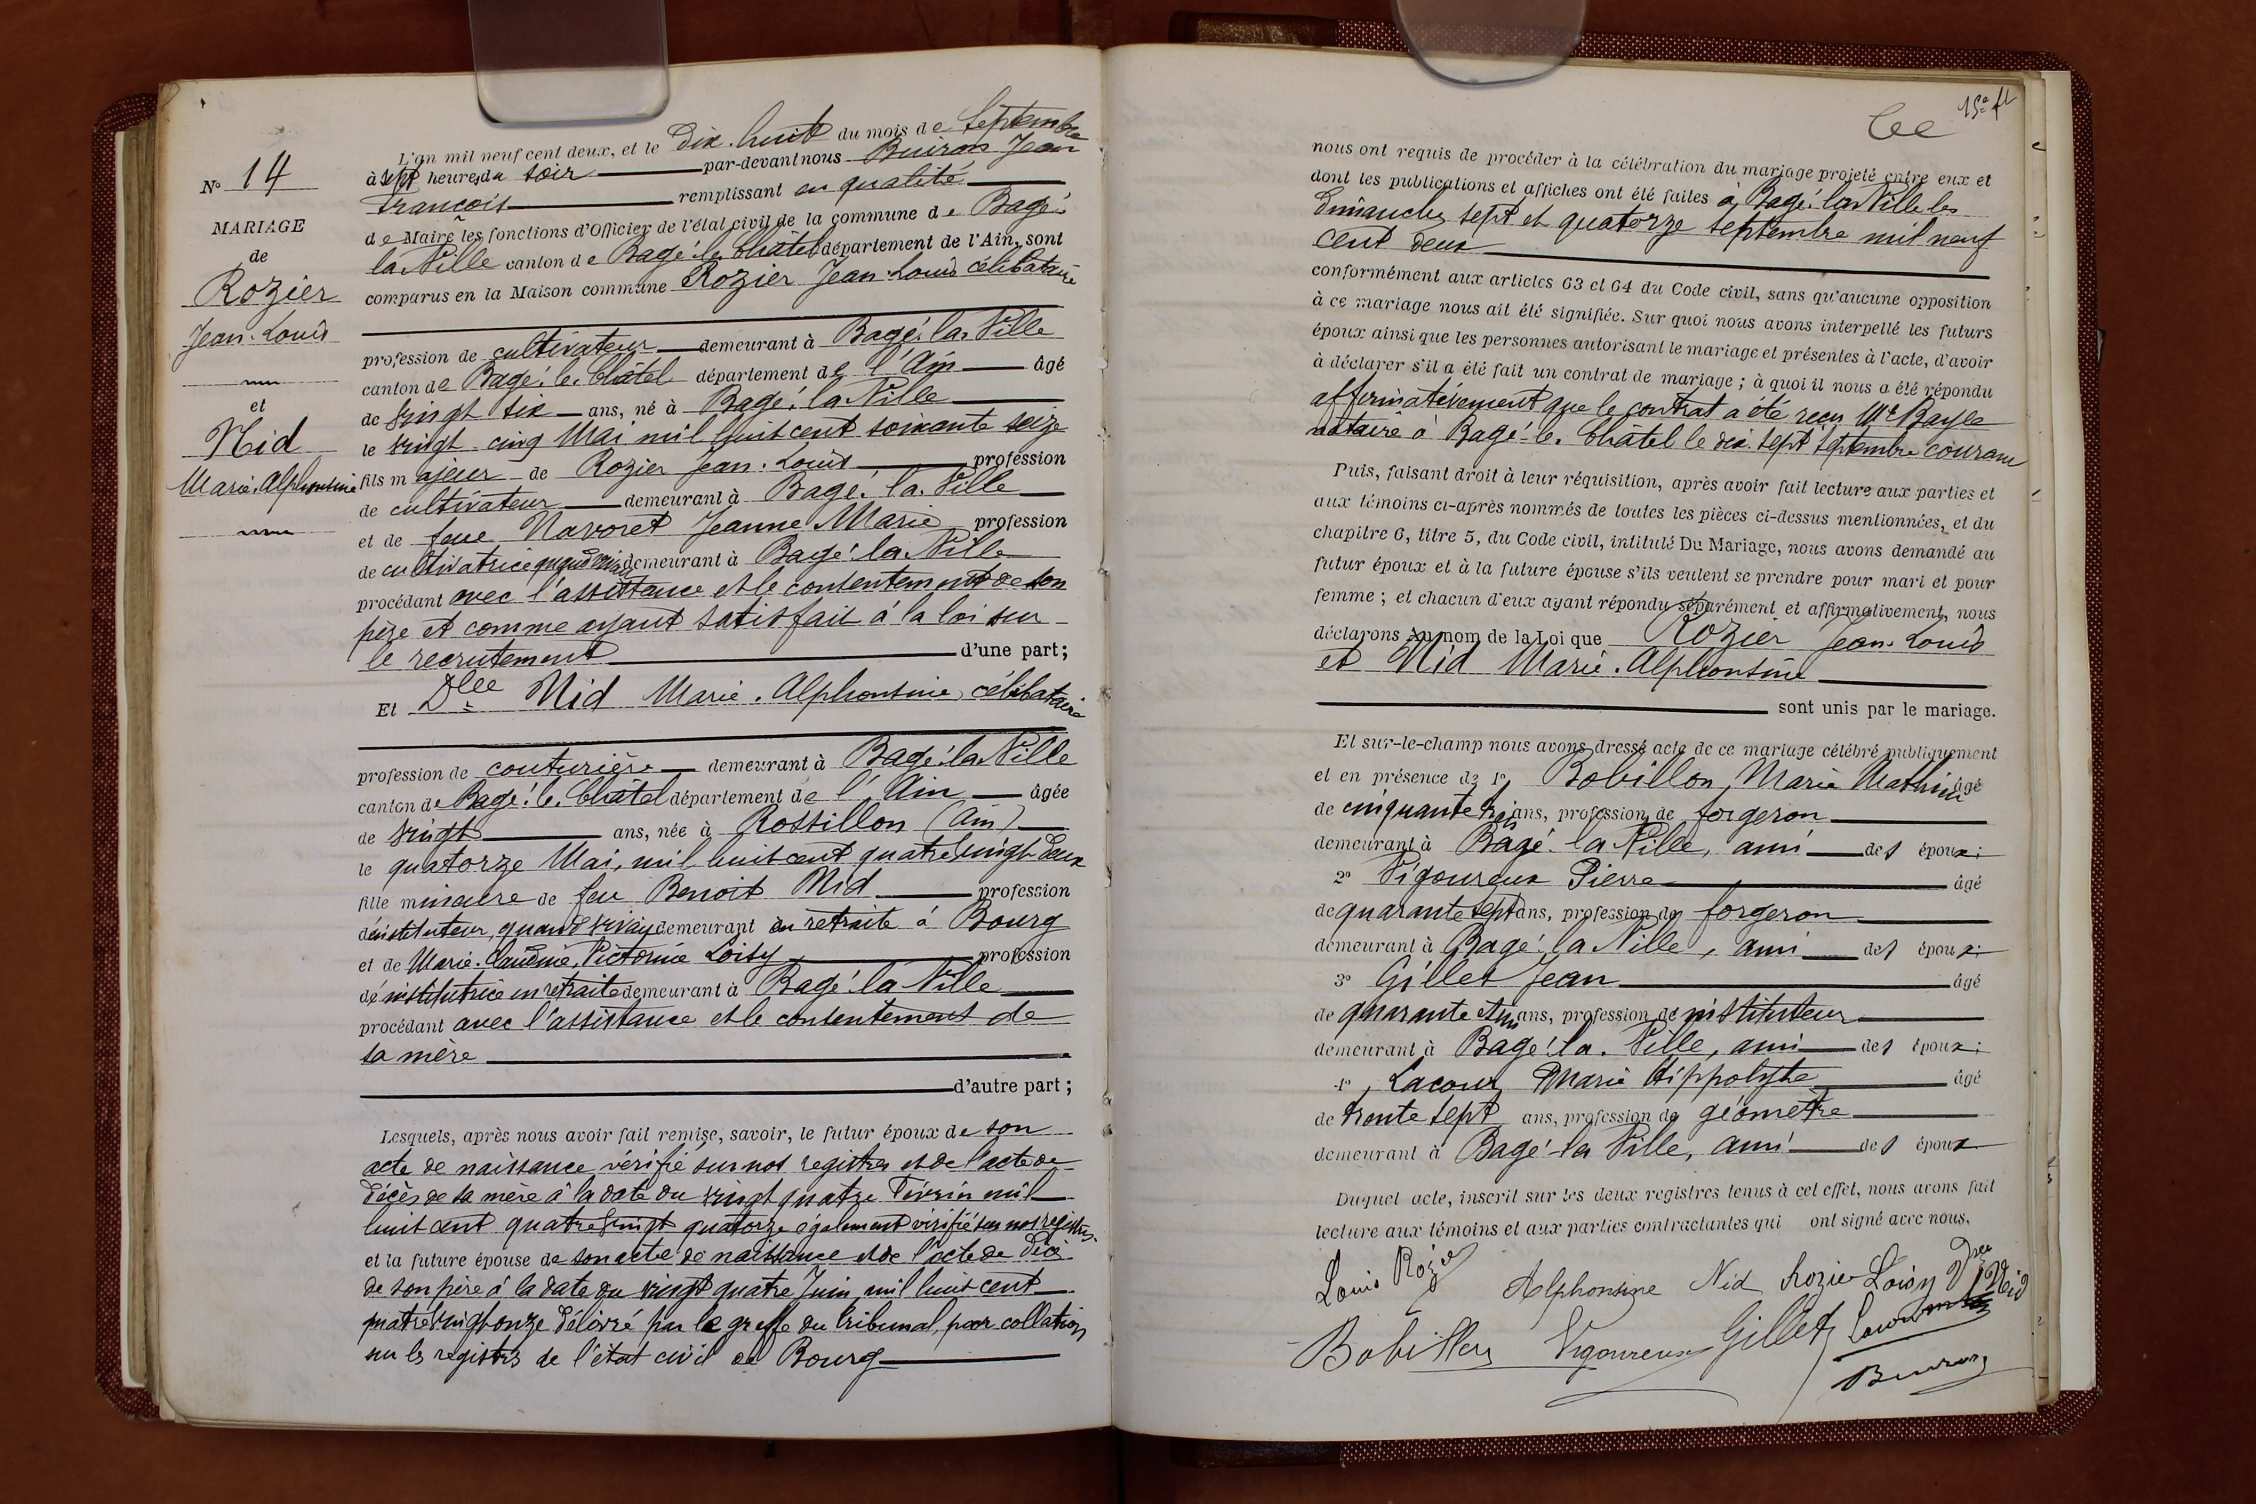 N° 14
MARIAGE
de
Rozier
Jean-Louis
et
Nid
Marie-Alphonsine
L'an mil neuf cent deux, et le Dix-huit du mois de Septembre
à sept heures du soir par-devant nous Buiron Jean
François remplissant en qualité
de Maire les fonctions d'Officier de l'état civil de la commune de Bagé-
la Ville canton de Bagé-le-Châtel département de l'Ain, sont
comparus en la Maison commune Rozier Jean-Louis célibataire
profession de cultivateur demeurant à Bagé-la-Ville
canton de Bagé-le-Châtel département de l'Ain âgé
de vingt six ans, né à Bagé-la-Ville
le vingt-cinq Mai mil huit cent soixante seize
fils majeur de Rozier Jean-Louis profession
de cultivateur demeurant à Bagé-la-Ville
et de feue Navoret Jeanne Marie profession
de cultivatrice quand vivait demeurant à Bagé-la-Ville
procédant avec l'assistance et le consentement de son
père et comme ayant satisfait à la loi sur
le recrutement d'une part;
Et Dlle Nid Marie-Alphonsine, célibataire
profession de couturière demeurant à Bagé-la-Ville
canton de Bagé-le-Châtel département de l'Ain âgée
de vingt ans, née à Rossillon (Ain)
le quatorze Mai, mil huit cent quatre vingt deux
fille mineure de feu Benoit Nid profession
d'instituteur, quand vivait demeurant en retraite à Bourg
et de Marie-Claudine, Victorine Loisy profession
d'institutrice en retraite demeurant à Bagé-la-Ville
procédant avec l'assistance et le consentement de
sa mère
d'autre part;
Lesquels, après nous avoir fait remise, savoir, le futur époux de son
acte de naissance vérifié sur nos registres et de l'acte de
décès de sa mère à la date du vingt quatre Février mil
huit cent quatre vingt quatorze également vérifié sur nos registres.
et la future épouse de son acte de naissance et de l'acte de décès
de son père à la date du vingt quatre Juin mil huit cent
quatre vingt onze délivré par le greffe du tribunal, pour collation
sur les registres de l'état civil de Bourg
15e ft
nous ont requis de procéder à la célébration du mariage projeté entre eux et
dont les publications et affiches ont été faites à Bagé-la-Ville les
dimanches sept et quatorze septembre mil neuf
cent deux
conformément aux articles 63 et 64 du Code civil, sans qu'aucune opposition
à ce mariage nous ait été signifiée. Sur quoi nous avons interpellé les futurs
époux ainsi que les personnes autorisant le mariage et présentes à l'acte, d'avoir
à déclarer s'il a été fait un contrat de mariage; à quoi il nous a été répondu
affirmativement que le contrat a été reçu Me Bayle
notaire à Bagé-le-Châtel le dix-sept septembre courant
Puis, faisant droit à leur réquisition, après avoir fait lecture aux parties et
aux témoins ci-après nommés de toutes les pièces ci-dessus mentionnées, et du
chapitre 6, titre 5, du Code civil, intitulé Du Mariage, nous avons demandé au
futur époux et à la future épouse s'ils veulent se prendre pour mari et pour
femme; et chacun d'eux ayant répondu séparément et affirmativement, nous
déclarons Au nom de la Loi que Rozier Jean-Louis
et Nid Marie-Alphonsine
sont unis par le mariage.
Et sur-le-champ nous avons dressé acte de ce mariage célébré publiquement
et en présence de 1° Bobillon, Marie Mathieu âgé
de cinquante trois ans, profession de forgeron
demeurant à Bagé-la Ville, ami des époux;
2° Vigoureux Pierre âgé
de quarante sept ans, profession de forgeron
demeurant à Bagé-la Ville, ami des époux;
3° Gillet Jean âgé
de quarante et un ans, profession d'instituteur
demeurant à Bagé-la-Ville, ami des époux;
4° Lacour Marie Hippolyte âgé
de trente sept ans, profession de géomètre
demeurant à Bagé-la Ville, ami des époux
Duquel acte, inscrit sur les deux registres tenus à cet effet, nous avons fait
lecture aux témoins et aux parties contractantes qui ont signé avec nous.
Louis Rozier Alphonsine Nid Rozier Loisy Vve Nid
Bobillon Vigoureux Gillet Lacour
Buiron